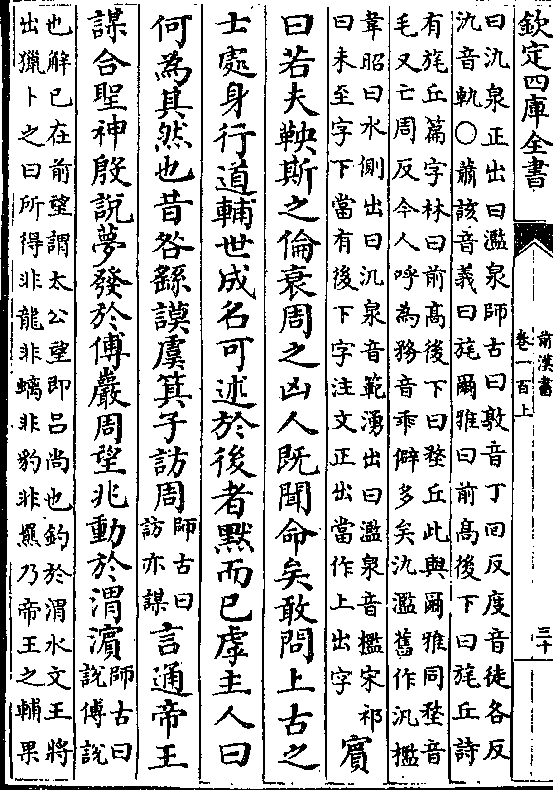 欽定四庫全書
前漢書
卷一百上
三十
曰氿泉正出曰濫泉師古曰敦音丁回反度音徒各反
氿音軌〇蕭該音義曰旄爾雅曰前髙後下曰旄丘詩
有旄丘篇字林曰前髙後下曰堥丘此與爾雅同堥音
毛又亡周反今人呼為務音乖僻多矣氿濫舊作汎檻
韋昭曰水側出曰氿泉音範湧出曰濫泉音檻宋祁
曰未至字下當有後下字注文正出當作上出字
賓
曰若夫鞅斯之倫衰周之凶人既聞命矣敢問上古之
士處身行道輔世成名可述於後者默而已虖主人曰
何為其然也昔咎繇謨虞箕子訪周
師古曰
訪亦謀
言通帝王
謀合聖神殷說夢發於傅巖周望兆動於渭濵
師古曰
說傅說
也解已在前望謂太公望即呂尚也釣於渭水文王將
出獵卜之曰所得非龍非螭非豹非羆乃帝王之輔果